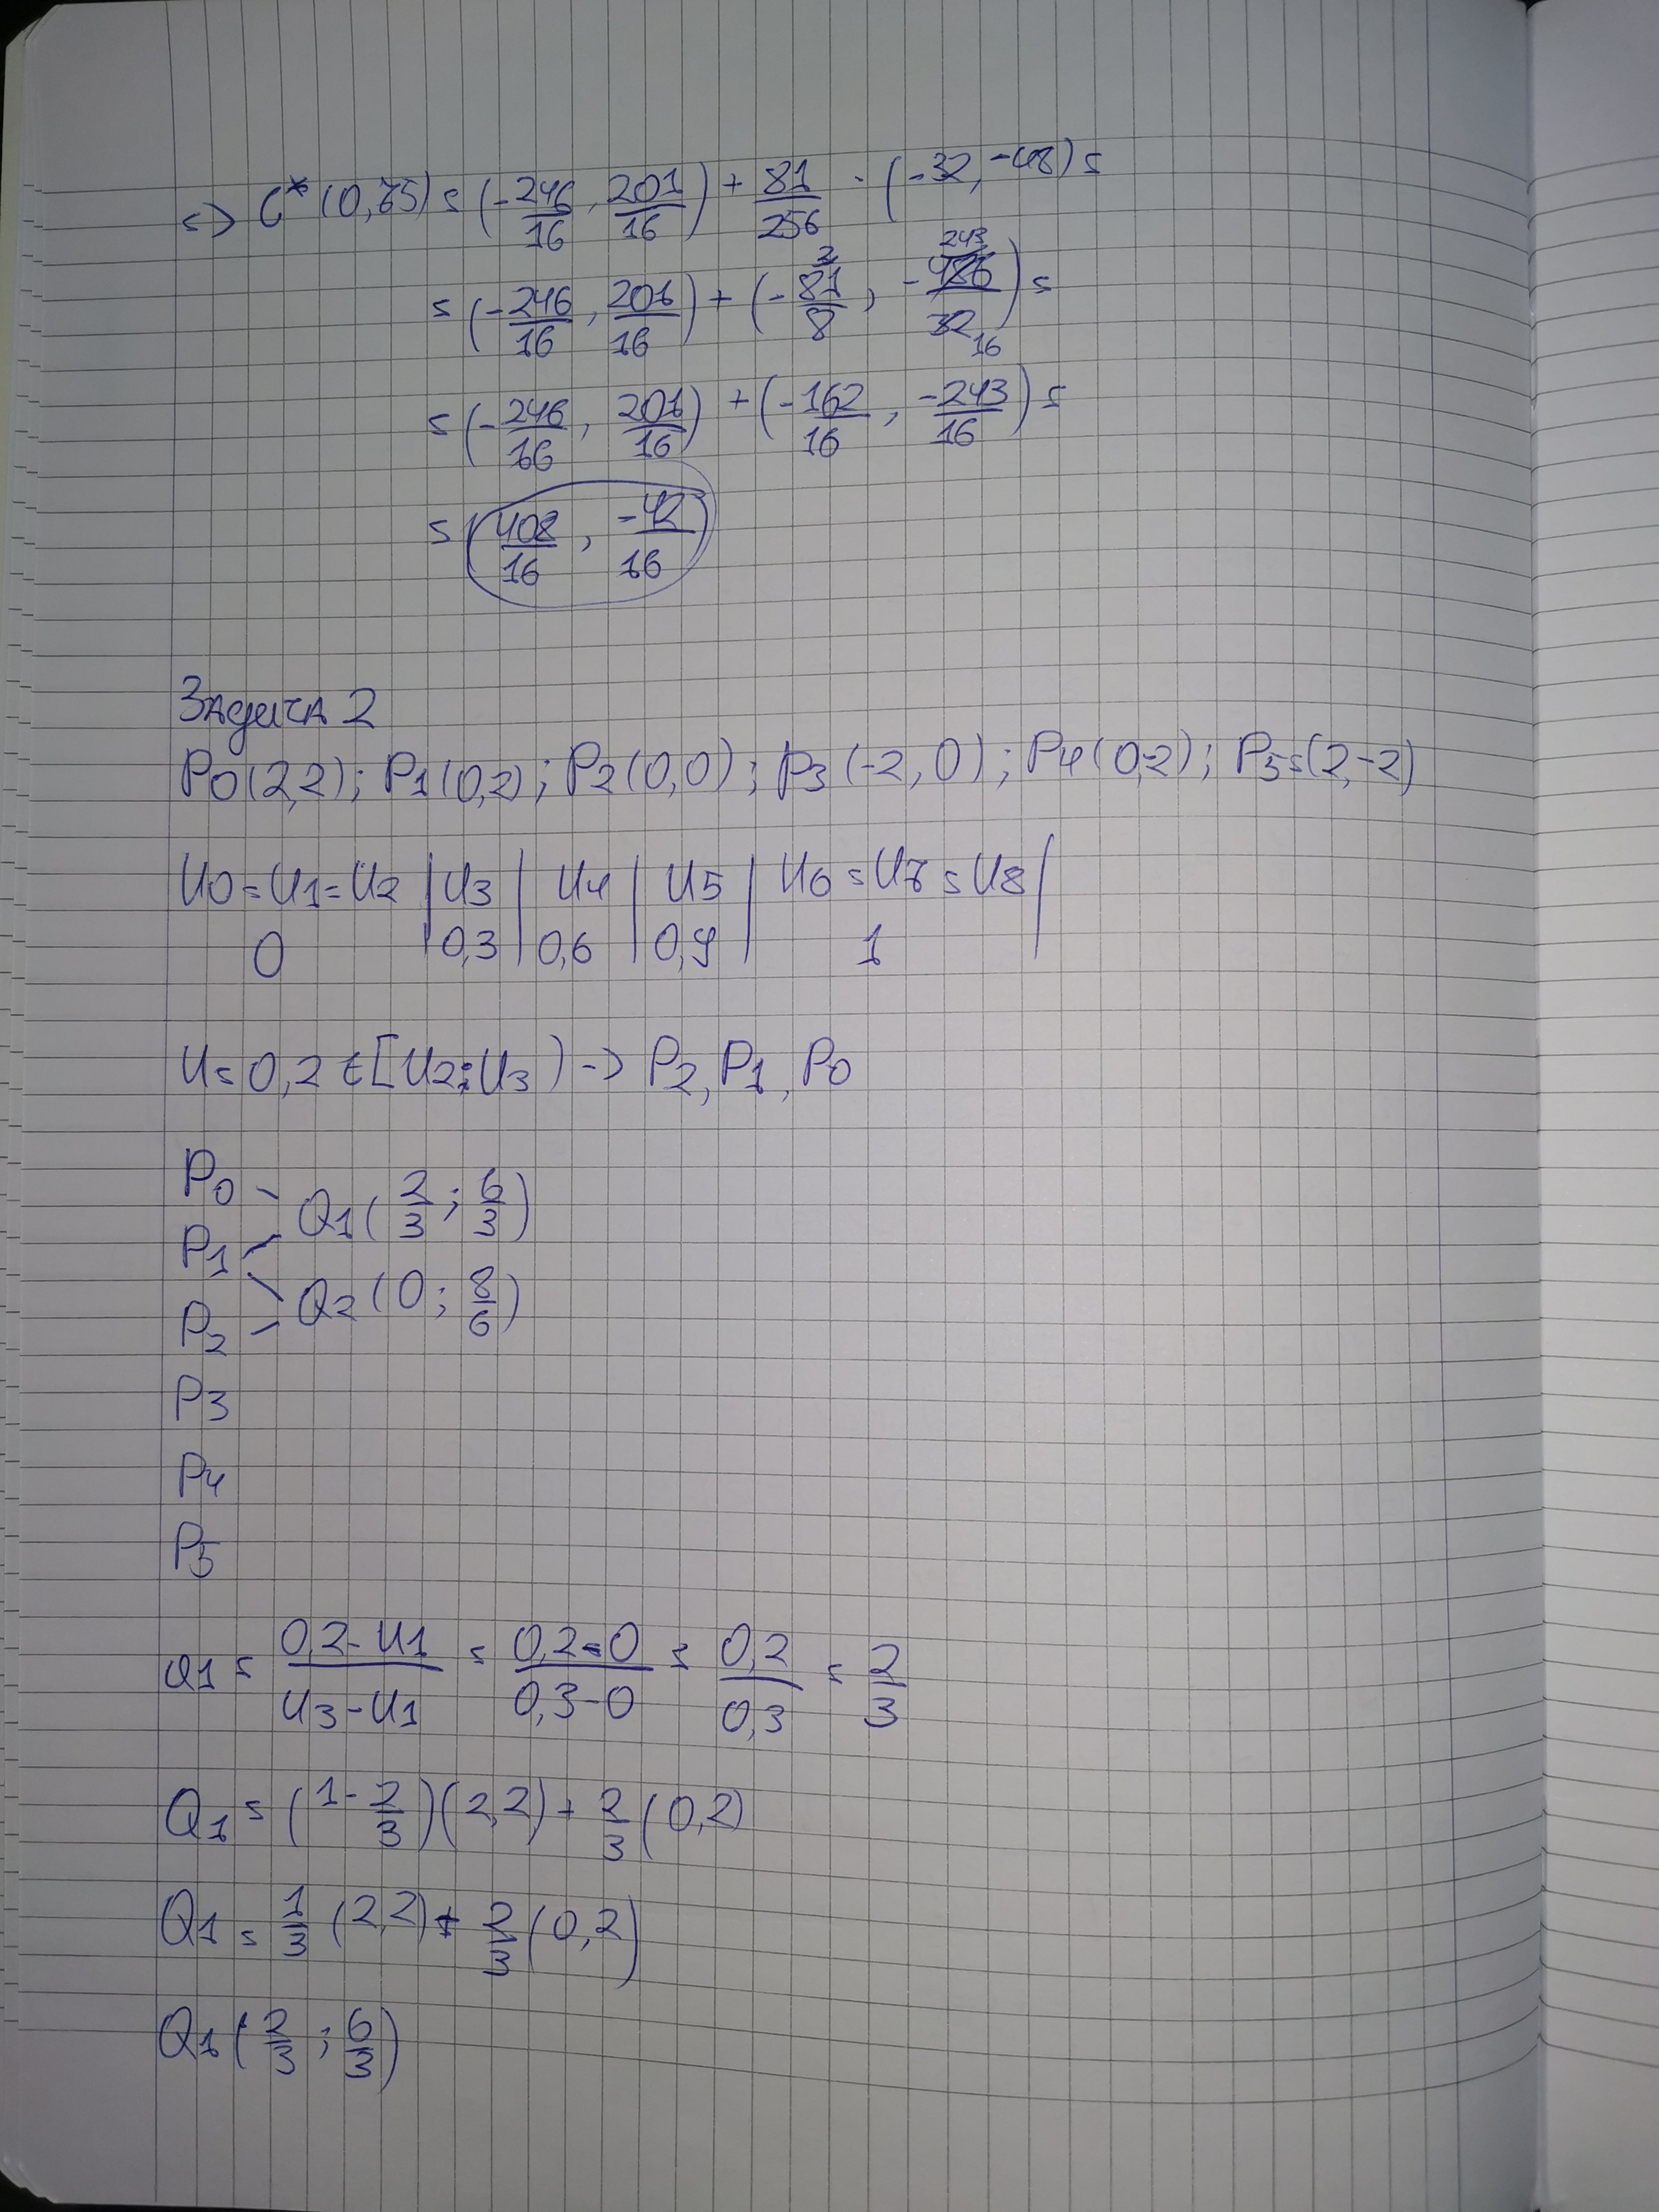 <=> C*(0,75) = (-246/16, 201/16) + 81/256 · (-32, -48) =
= (-246/16, 201/16) + (-81/8, -486/32) = 2 243 16
= (-246/16, 201/16) + (-162/16, -243/16) =
= (408/16, -42/16)
Задача 2
P0(2,2); P1(0,2); P2(0,0); P3(-2,0); P4(0-2); P5=(2,-2)
u0=u1=u2 | u3 | u4 | u5 | u6=u7=u8 |
0 | 0,3 | 0,6 | 0,9 | 1
u=0,2 ∈ [u2;u3) -> P2, P1, P0
P0
Q1(2/3; 6/3)
P1
Q2(0; 8/6)
P2
P3
P4
P5
a1 = (0,2-u1)/(u3-u1) = (0,2-0)/(0,3-0) = 0,2/0,3 = 2/3
Q1 = (1-2/3)(2,2) + 2/3(0,2)
Q1 = 1/3 (2,2) + 2/3(0,2)
Q1(2/3; 6/3)